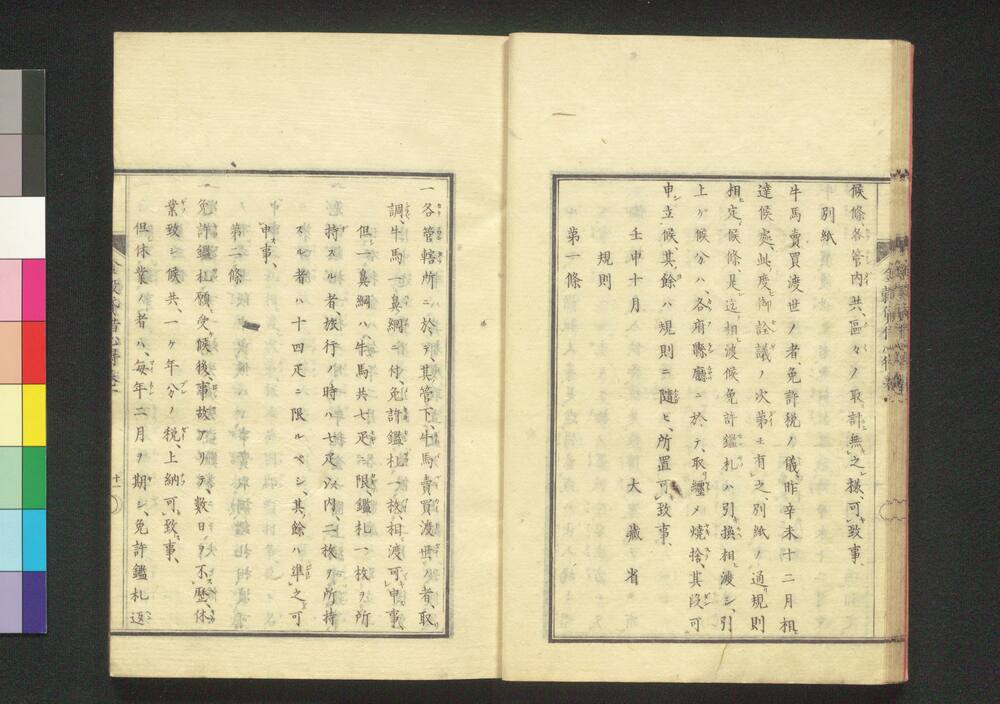 候條各管内共、區々ノ取計無之樣、可致事
別紙
牛馬賣買渡世ノ者、免許税ノ儀、昨辛未十二月相
達候處、此度御詮議ノ次第モ有之、別紙ノ通規則
相定候條、是迄相渡候免許鑑札ハ引換相渡シ、引
上ケ候分ハ、各府縣廳ニ於テ取纒メ燒捨、其段可
申立候、其餘ハ規則ニ隨ヒ、所置可致事、
壬申十月 大藏省
規則
第一條
一各管轄所ニ於テ、其管下、牛馬賣買渡世ノ者、取
調、牛馬一鼻綱ニ付、免許鑑札一枚、相渡可申事、
但一鼻綱ハ、牛馬共七疋ニ限、鑑札一枚ヲ所
持スル者、旅行ノ時ハ七疋以内、二枚ヲ所持
スル者ハ十四疋ニ限ルベシ、其餘ハ準之可
申事、
第二條
免許鑑札願受候後、事故アリテ、數日ヲ不歴、休
業致候共、一ケ年分ノ税、上納可致事、
但休業ノ者ハ、毎年二月ヲ期シ、免許鑑札返
十一